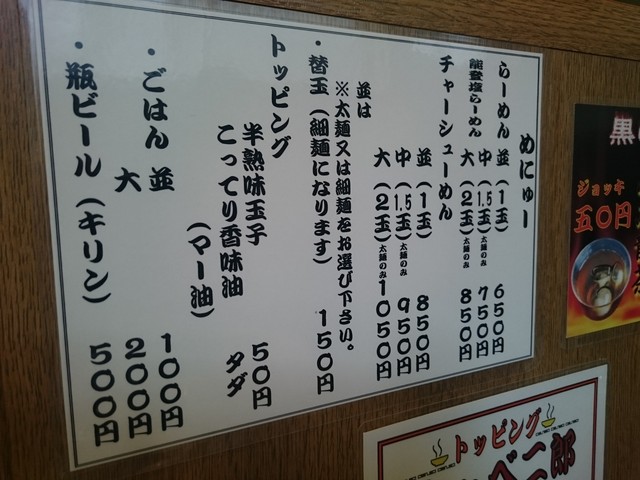 めにゅー
らーめん 並(1玉) 650円
能登塩らーめん 中(1.5玉)太麺のみ 750円
大(2玉)太麺のみ 850円
チャーシューめん
並(1玉) 850円
中(1.5玉)太麺のみ 950円
大(2玉)太麺のみ 1050円
並は
※太麺又は細麺をお選び下さい。
・替玉(細麺になります) 150円
トッピング
半熟味玉子 50円
こってり香味油 タダ
(マー油)
・ごはん 並 100円
大 200円
・瓶ビール(キリン) 500円
黒
ジョッキ
五〇円
トッピング
べ二郎